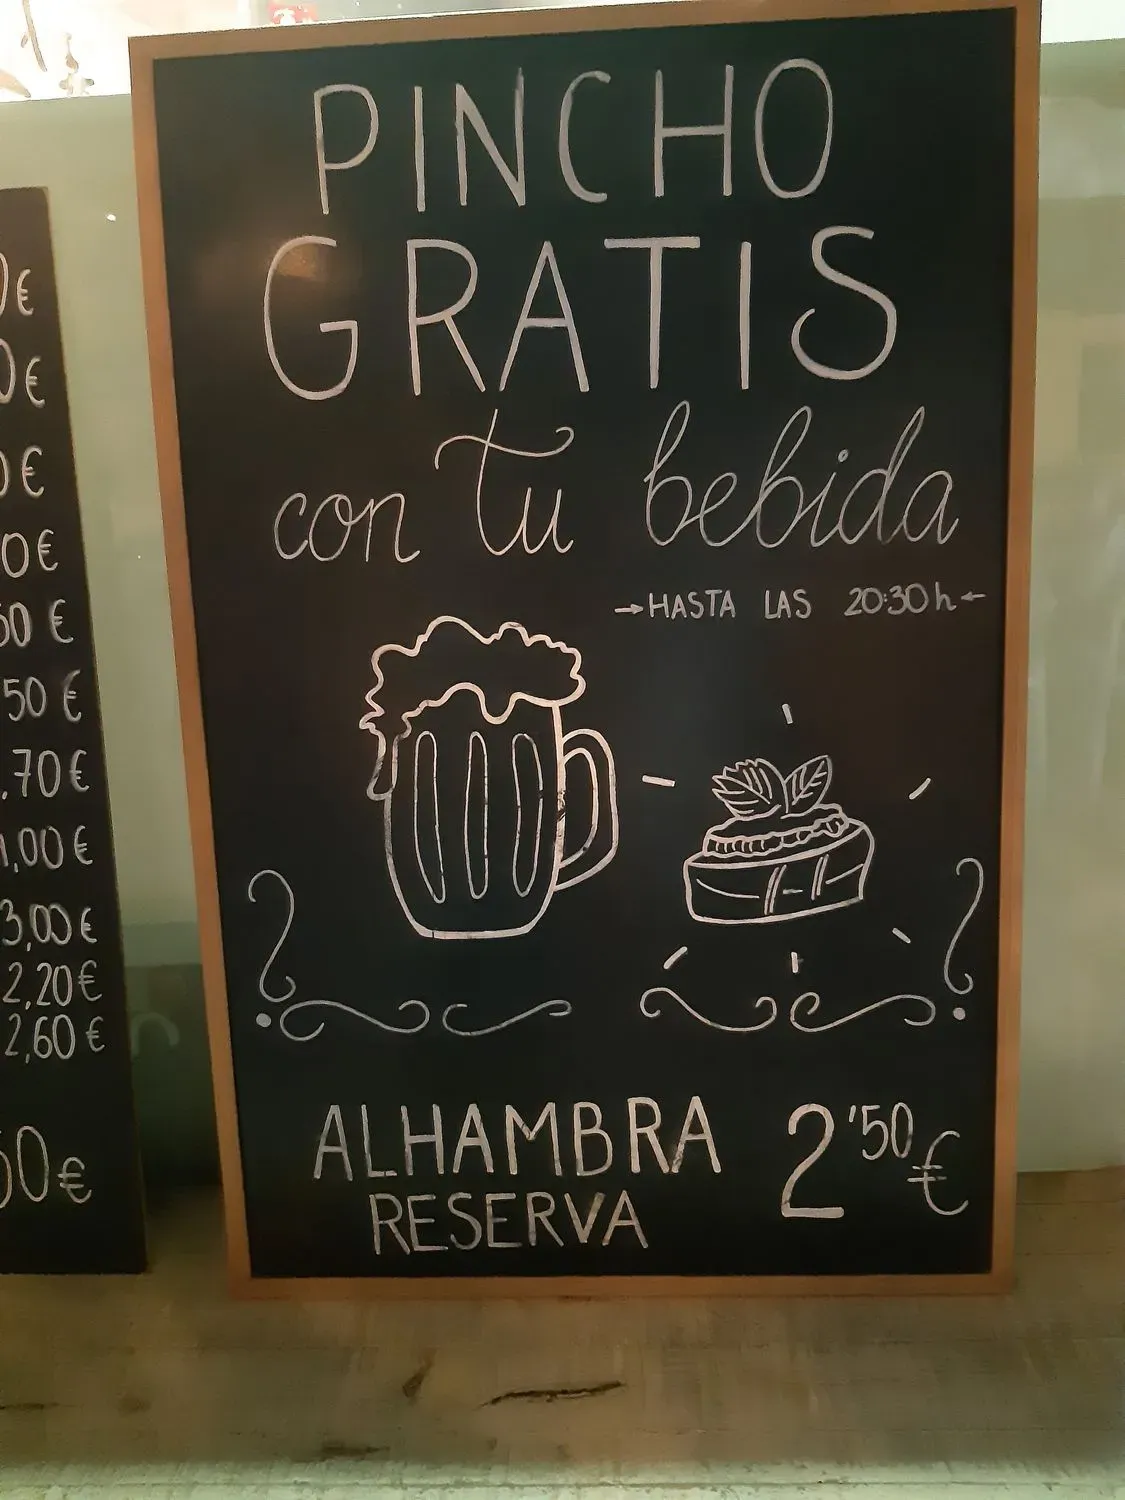 PINCHO
GRATIS
con tu bebida
→HASTA LAS 20:30h←
ALHAMBRA 2'50€
RESERVA
0€
0€
0€
0€
50 €
50 €
.70€
1,00€
3,00€
2,20€
2,60€
50€